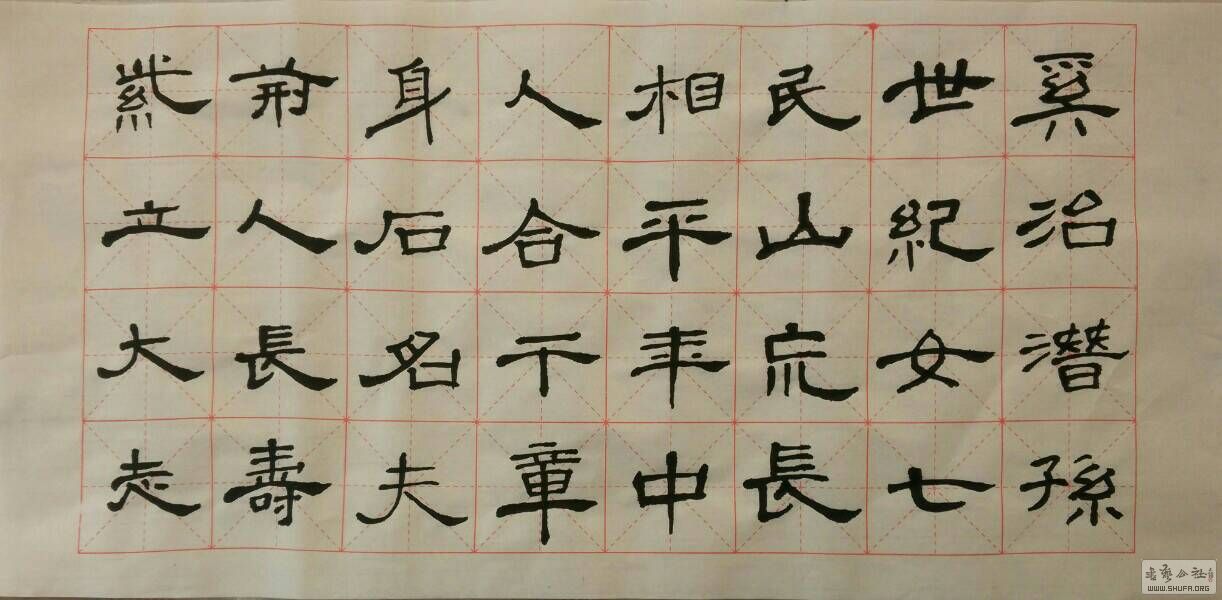 奚治潛孫
世紀女七
民山長
相平年中
人合下章
身石名夫
人長壽
紫立大志
書藝公社
WWW.SHUFA.ORG